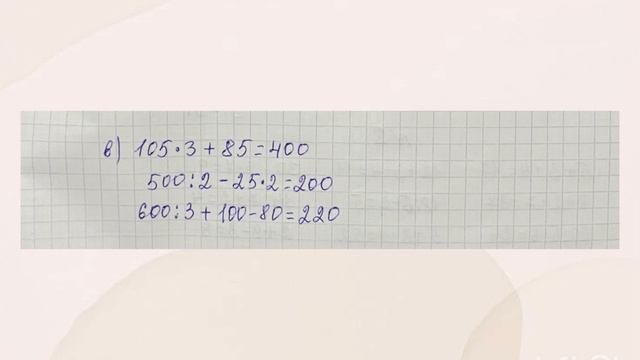 в) 105·3+85=400
500:2-25·2=200
600:3+100-80=220